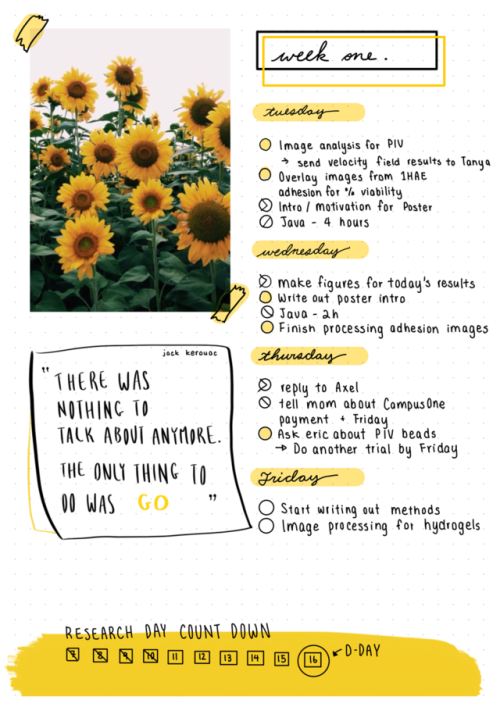 week one.
tuesday
Image analysis for PIV
→ send velocity field results to Tanya
Overlay images from 1HAE
adhesion for % viability
Intro / motivation for Poster
Java - 4 hours
wednesday
make figures for today's results
Write out poster intro
Java - 2h
Finish processing adhesion images
thursday
reply to Axel
tell mom about CampusOne
payment + Friday
Ask eric about PIV beads
→ Do another trial by Friday
Friday
Start writing out methods
Image processing for hydrogels
jack kerouac
"THERE WAS
NOTHING TO
TALK ABOUT ANYMORE.
THE ONLY THING TO
DO WAS GO "
RESEARCH DAY COUNT DOWN
7 8 9 10 11 12 13 14 15 16 ← D-DAY